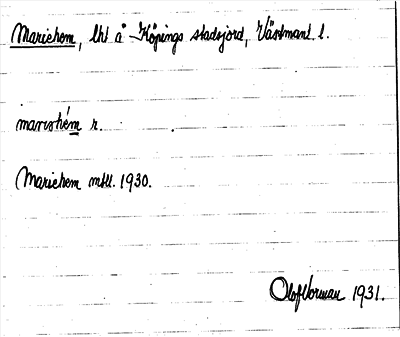 Mariehem, lht å Köpings stadsjord, Västmanl. l.
marishém r.
Mariehem mtll. 1930.
Olof Norman 1931.